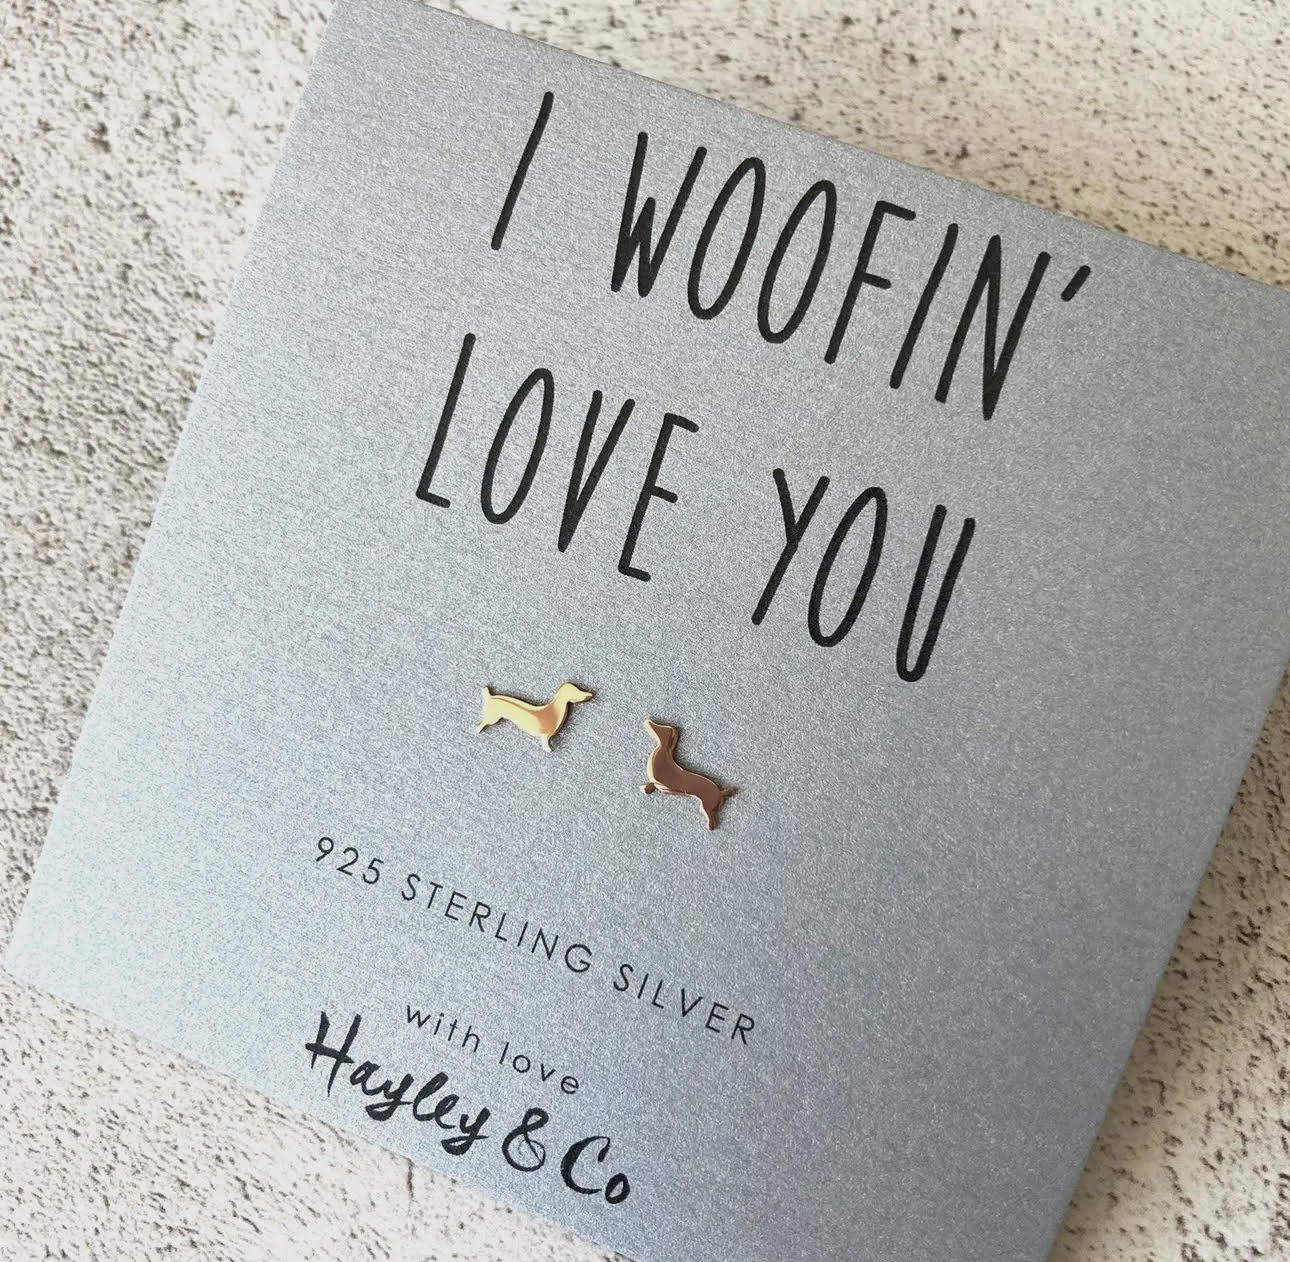 I WOOFIN'
LOVE YOU
925 STERLING SILVER
with love
Hayley & Co